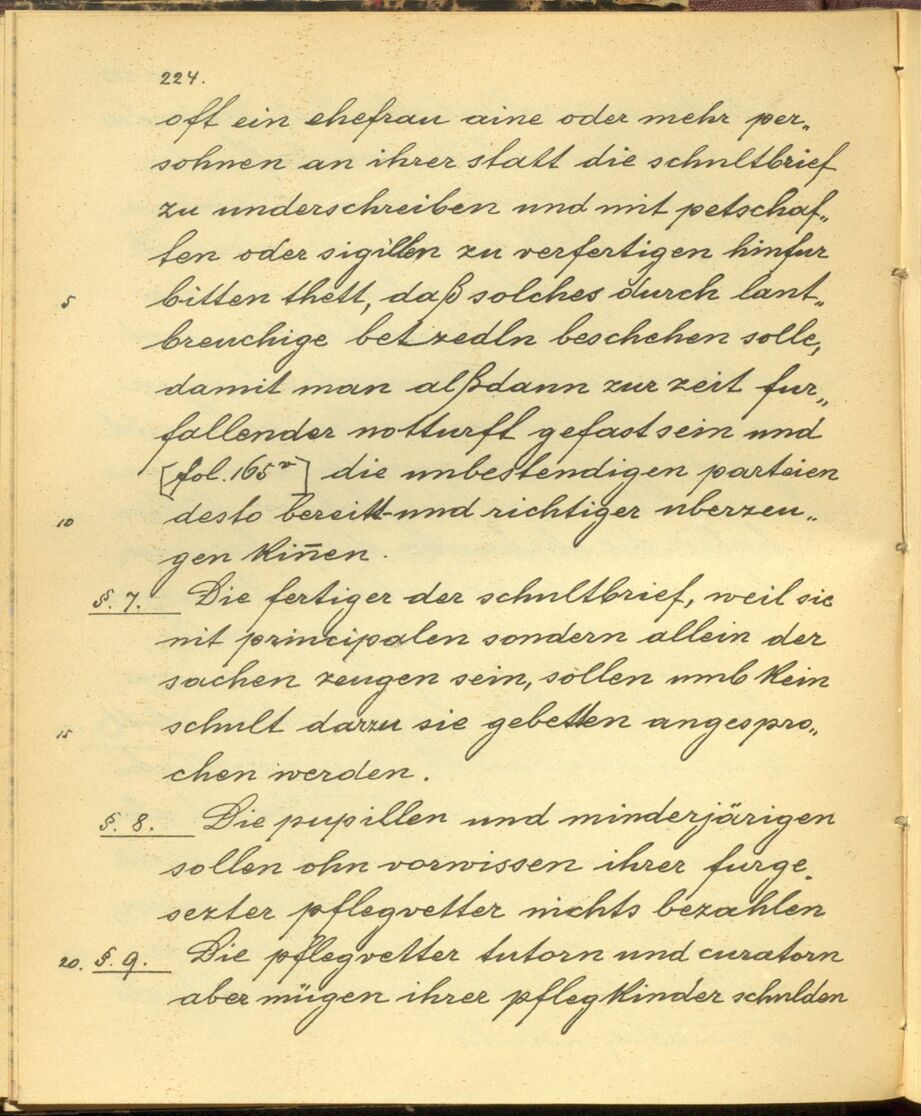 224.
oft ein ehefrau aine oder mehr per„
sohnen an ihrer statt die schultbrief
zu underschreiben und mit petschaf„
ten oder sigillen zu verfertigen hinfur
5 bitten thett, daß solches durch lant„
breuchige betzedln beschehen solle,
damit man alßdann zur zeit fur„
fallender notturft gefast sein und
[fol. 165v] die unbestendigen parteien
10 desto bereitt- und richtiger uberzeu„
gen kin̄en.
§. 7. Die fertiger der schultbrief, weil sie
nit principalen sondern allein der
sachen zeugen sein, sollen umb kein
15 schult darzu sie gebetten angespro„
chen werden.
§. 8. Die pupillen und minderjärigen
sollen ohn vorwissen ihrer furge„
sezter pflegvetter nichts bezahlen
20. §. 9. Die pflegvetter tutorn und curatorn
aber mügen ihrer pflegkinder schulden